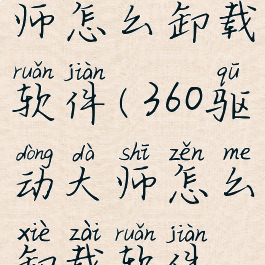 师怎么卸载
ruǎn jiàn qū
软件(360驱
dòng dà shī zěn me
动大师怎么
xiè zài ruǎn jiàn
卸载软件